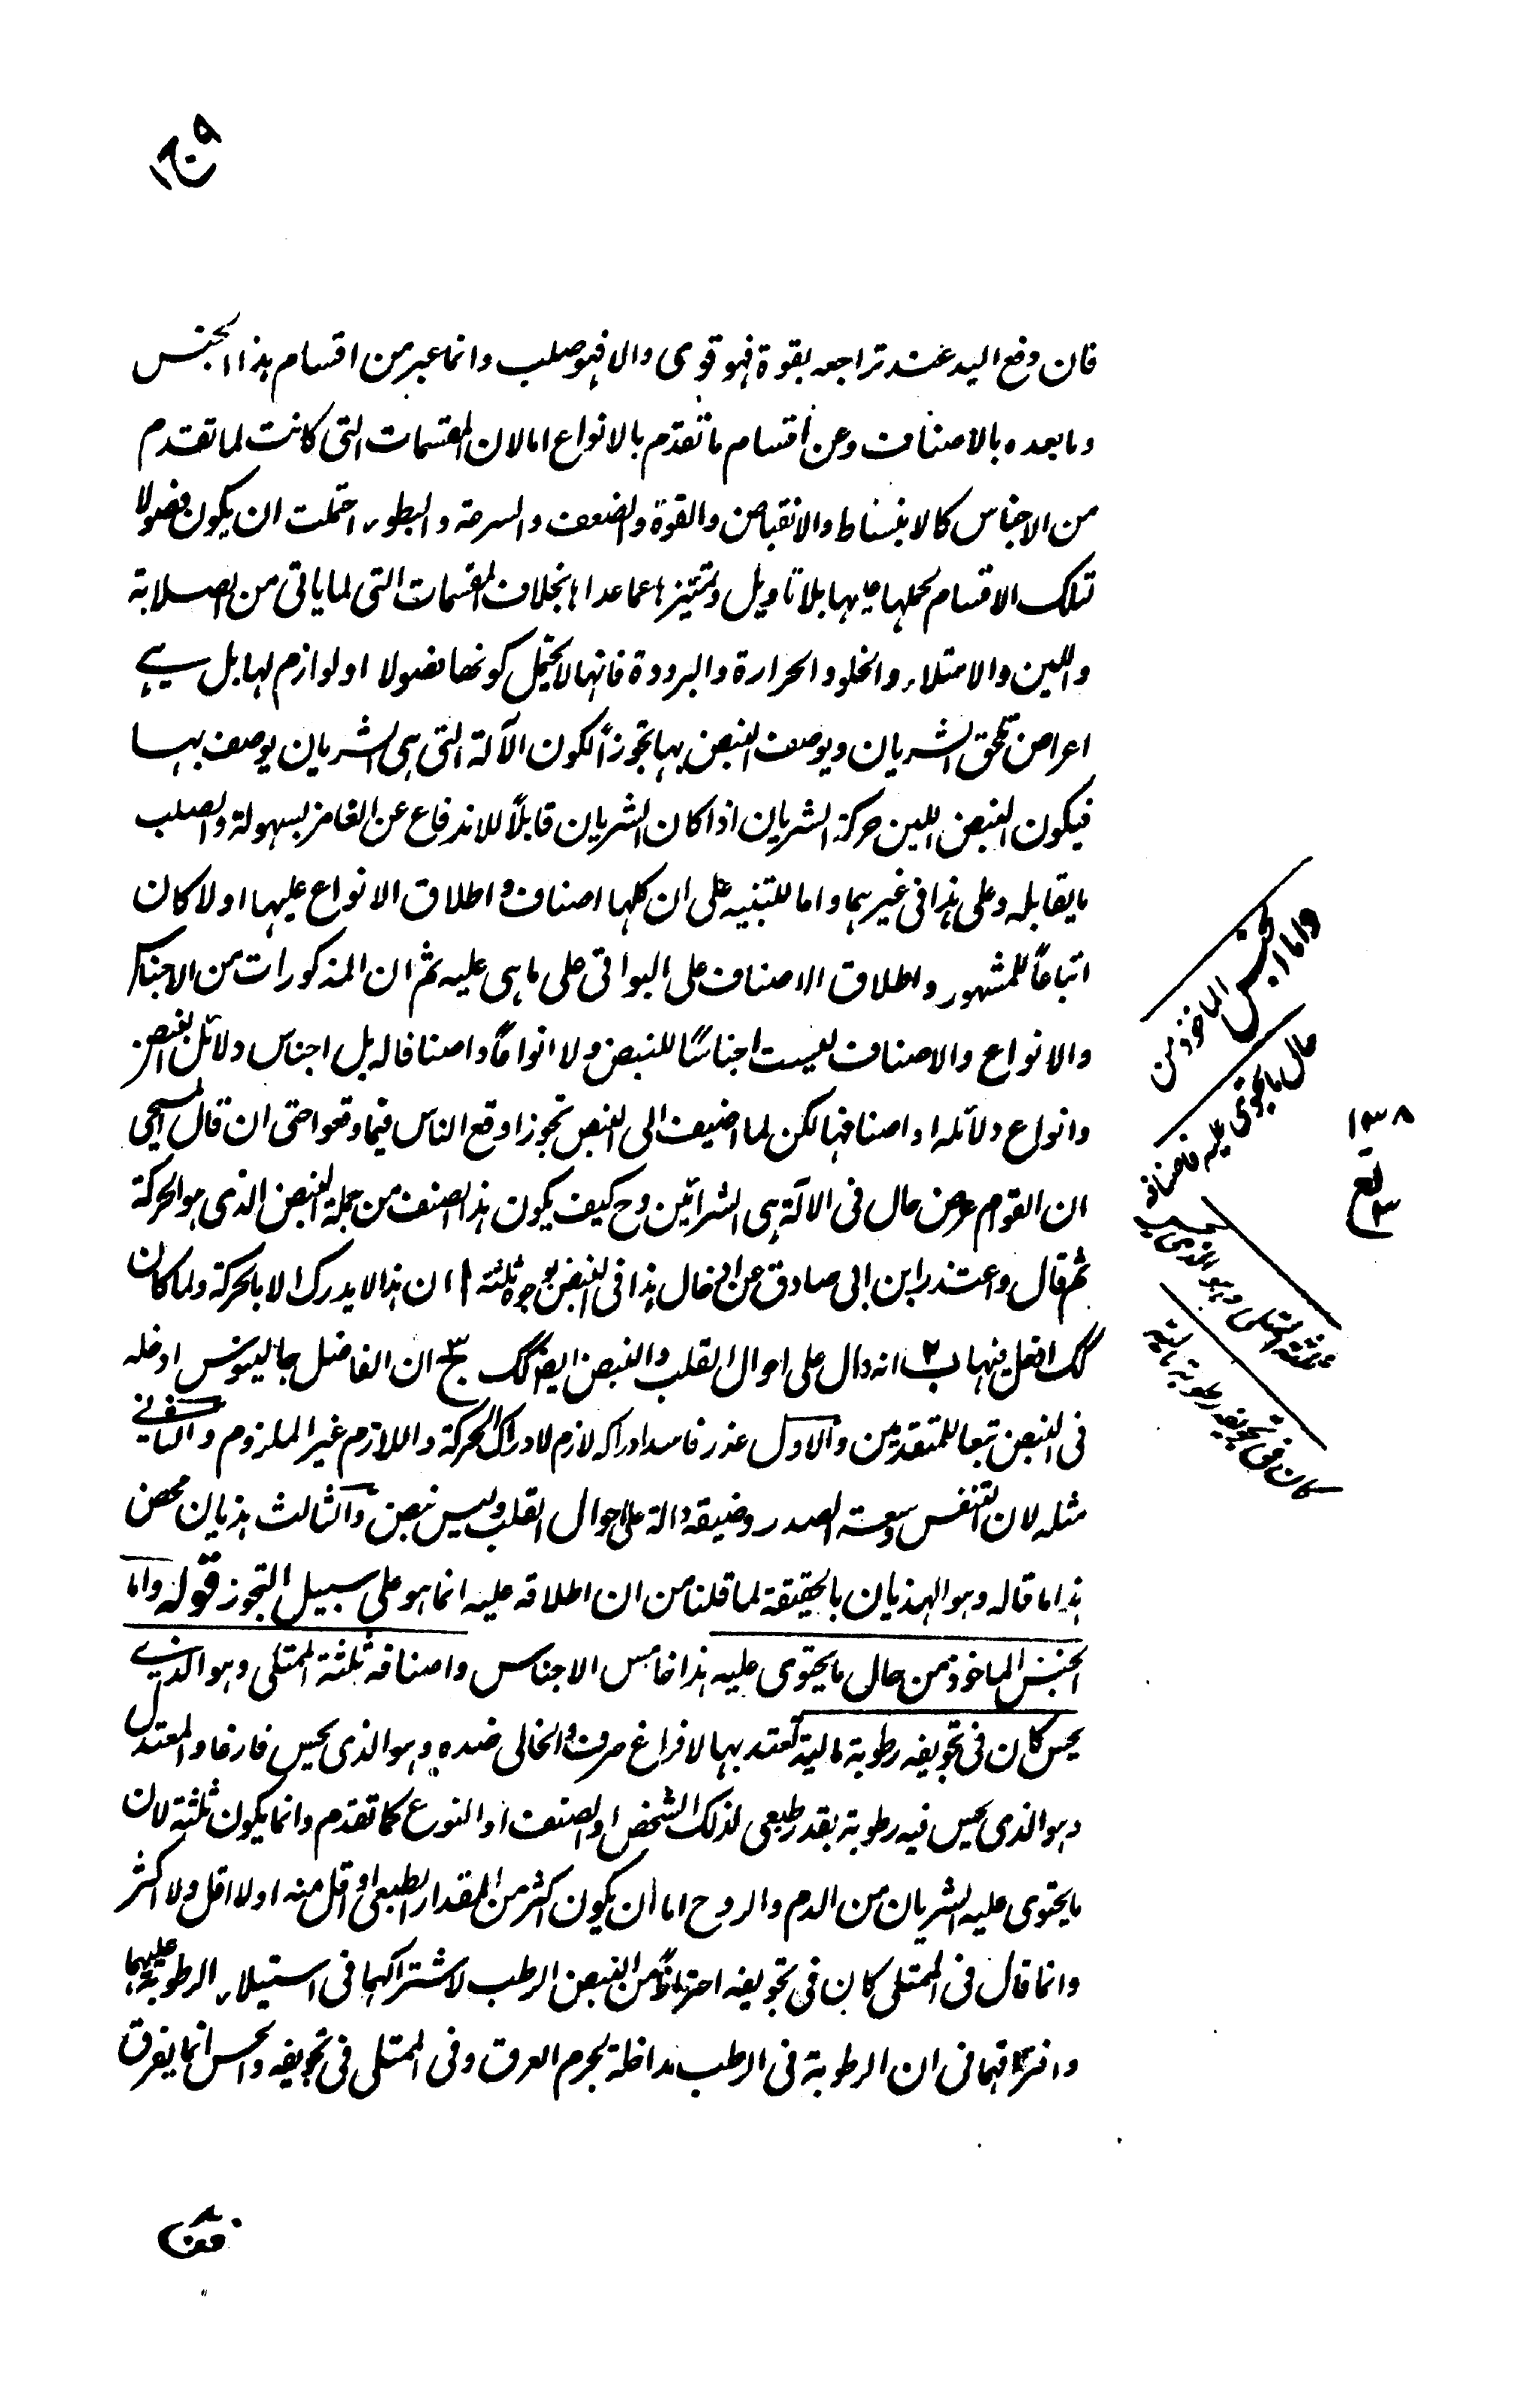 فان دفع اليد عند تراجعه بقوة فهو قوى والا فهو صلب وانما عبر من اقسام هذا الجنس
وما بعده بالاصناف وعن اقسام ما تقدم بالانواع اما لان المقسمات التى كانت لما تقدم
من الاجناس كالانبساط والانقباض والقوة والضعف والسرعة والبطوء احتملت ان يكون فصولا
تلك الاقسام لحملها عليها بلا تاويل وتمييزها عما عداها بخلاف المقسمات التى لما ياتى من الصلابة
واللين والامتلاء والخلو والحرارة والبرودة فانها لا يحتمل كونها فصولا او لوازم لها بل هى
اعراض تلحق الشريان ويوصف النبض بها تجوزاً لكون الآلة التى هى الشريان يوصف بها
فيكون النبض اللين حركة الشريان اذا كان الشريان قابلاً للاندفاع عن الغامز بسهولة والصلب
ما يقابله وعلى هذا فى غيرهما واما للتنبيه على ان كلها اصناف واطلاق الانواع عليها اولا كان
اتباعاً للمشهور واطلاق الاصناف على البواقى على ما هى عليه ثم ان المذكورات من الاجناس
والانواع والاصناف ليست اجناسًا للنبض ولا انواعاً واصنافا له بل اجناس دلائل النبض
وانواع دلائله او اصنافها لكن لما اضيف الى النبض تجوزا اوقع الناس فيما وقعوا حتى ان قال المسيحى
ان القوام عرض حال فى الالة هى الشرائين وح كيف يكون هذا الصنف من جملة النبض الذى هو الحركة
ثم قال وعتذر ابن ابى صادق عن ادخال هذا فى النبض بوجوه ثلثة ا ان هذا لا يدرك الا بالحركة ولما كان
كك ادخل فيها ب انه دال على احوال القلب والنبض ايضا كك ج ان الفاضل جالينوس ادخله
فى النبض تبعا للمتقدمين والاول عذر فاسد ادراكه لازم لادراك الحركة واللازم غير الملزوم والثانى
مثله لان التنفس وسعة الصدر وضيقه دالة على احوال القلب وليس نبض والثالث هذيان محض
هذا ما قاله وهو الهذيان بالحقيقة لما قلنا من ان اطلاقه عليه انما هو على سبيل التجوز قوله واما
الجنس الماخوذ من حال ما يحتوى عليه هذا خامس الاجناس واصنافه ثلثة الممتلى وهو الذى
يحس كان فى تجويفه رطوبة مالية تعتد بها لا فراغ صرف والخالى ضده وهو الذى يحس فارغا والمعتدل
وهو الذى يحس فيه رطوبة بقدر طبعى لذلك الشخص او الصنف او النوع كما تقدم وانما يكون ثلثة لان
ما يحتوى عليه الشريان من الدم والروح اما ان يكون اكثر من المقدار الطبعى او اقل منه او لا اقل ولا اكثر
وانما قال فى الممتلى كان فى تجويفه احترازاً من النبض الرطب لاشتراكهما فى استيلاء الرطوبة عليهما
وافتراقهما فى ان الرطوبة فى الرطب مداخلة لجرم العرق وفى الممتلى فى تجويفه والحس انما يفرق
واما الجنس الماخوذ من
حال ما يحتوى عليه فاصنافه
ثلثة الممتلى وهو الذى يحس
كان فى تجويفه رطوبة مالية
١٣٨